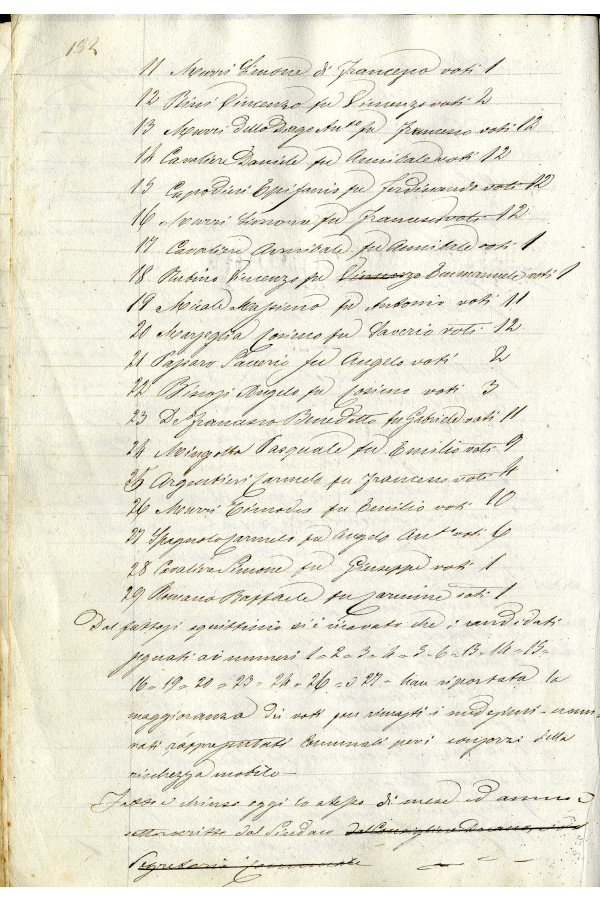 132
11 Murri Simone di Francesco voti 1
12 Bini Vincenzo fu Vincenzo voti 2
13 Murri dello Drago Ant.o fu Francesco voti 12
14 Cavaliere Daniele fu Annibale voti 12
15 Capodieci Epifanio fu Ferdinando voti 12
16 Murri fu Francesco voti 12
17 Cavaliere Annibale fu Annibale voti 1
18 Rubino Vincenzo fu Vincenzo Emmanuele voti 1
19 Micale Massimo fu Antonio voti 11
20 Marseglia Cosimo fu Saverio voti 12
21 Saverio fu Angelo voti 2
22 Angelo fu Cosimo voti 3
23 De Francesco Benedetto fu Gabriele voti 11
24 Mingolla Pasquale fu Emilio voti 9
25 Argentieri Carmelo fu Francesco voti 4
26 Murri fu Emilio voti 10
27 Spagnolo Carmelo fu Angelo Ant.o voti 6
28 Cavaliere Simone fu Giuseppe voti 1
29 Romano Raffaele fu Carmine voti 1
Dal fattosi squittinio si è ricavato che i candidati
segnati ai numeri 1= 2= 3= 4= 5= 6= 13= 14= 15=
16= 19= 20= 23= 24= 26= e 27= han riportata la
maggioranza dei voti
rappresentati Comunali pei consorzi della
ricchezza mobile=
Fatto e chiuso oggi lo stesso dì mese ed anno e
sottoscritto dal Sindaco dal Consigliere Anziano e dal
Segretario Comunale